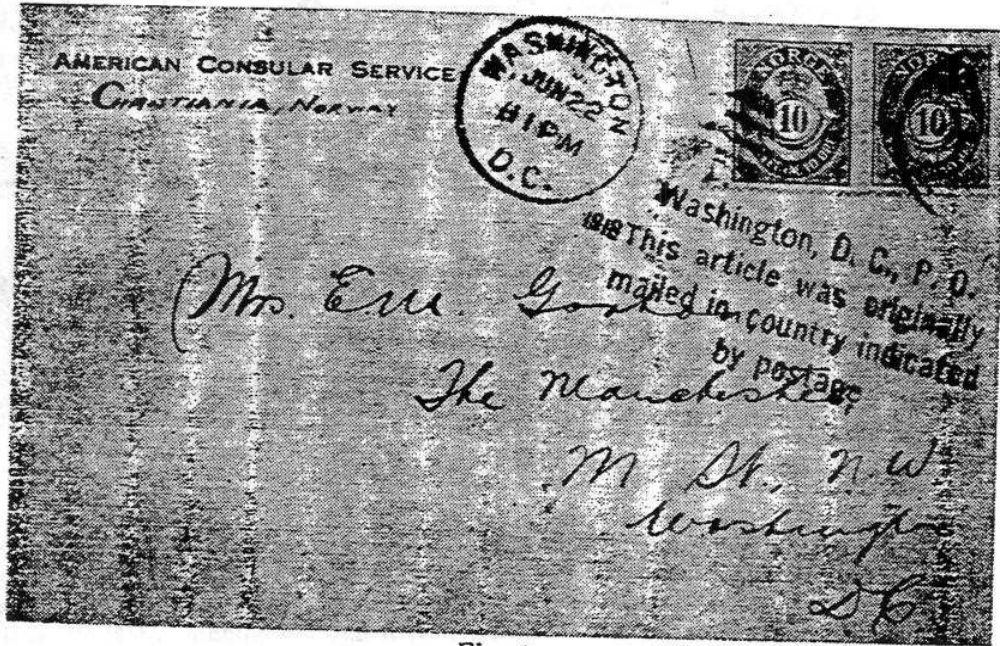 AMERICAN CONSULAR SERVICE
CHRISTIANIA, NORWAY
WASHINGTON
JUN 22
81PM
D.C.
NORGE
10
NORGE
10
Washington, D. C., P. O.
1918 This article was originally
mailed in country indicated
by postage
Mrs. E. M.
The Manchester
M St., N.W
Washington
D C